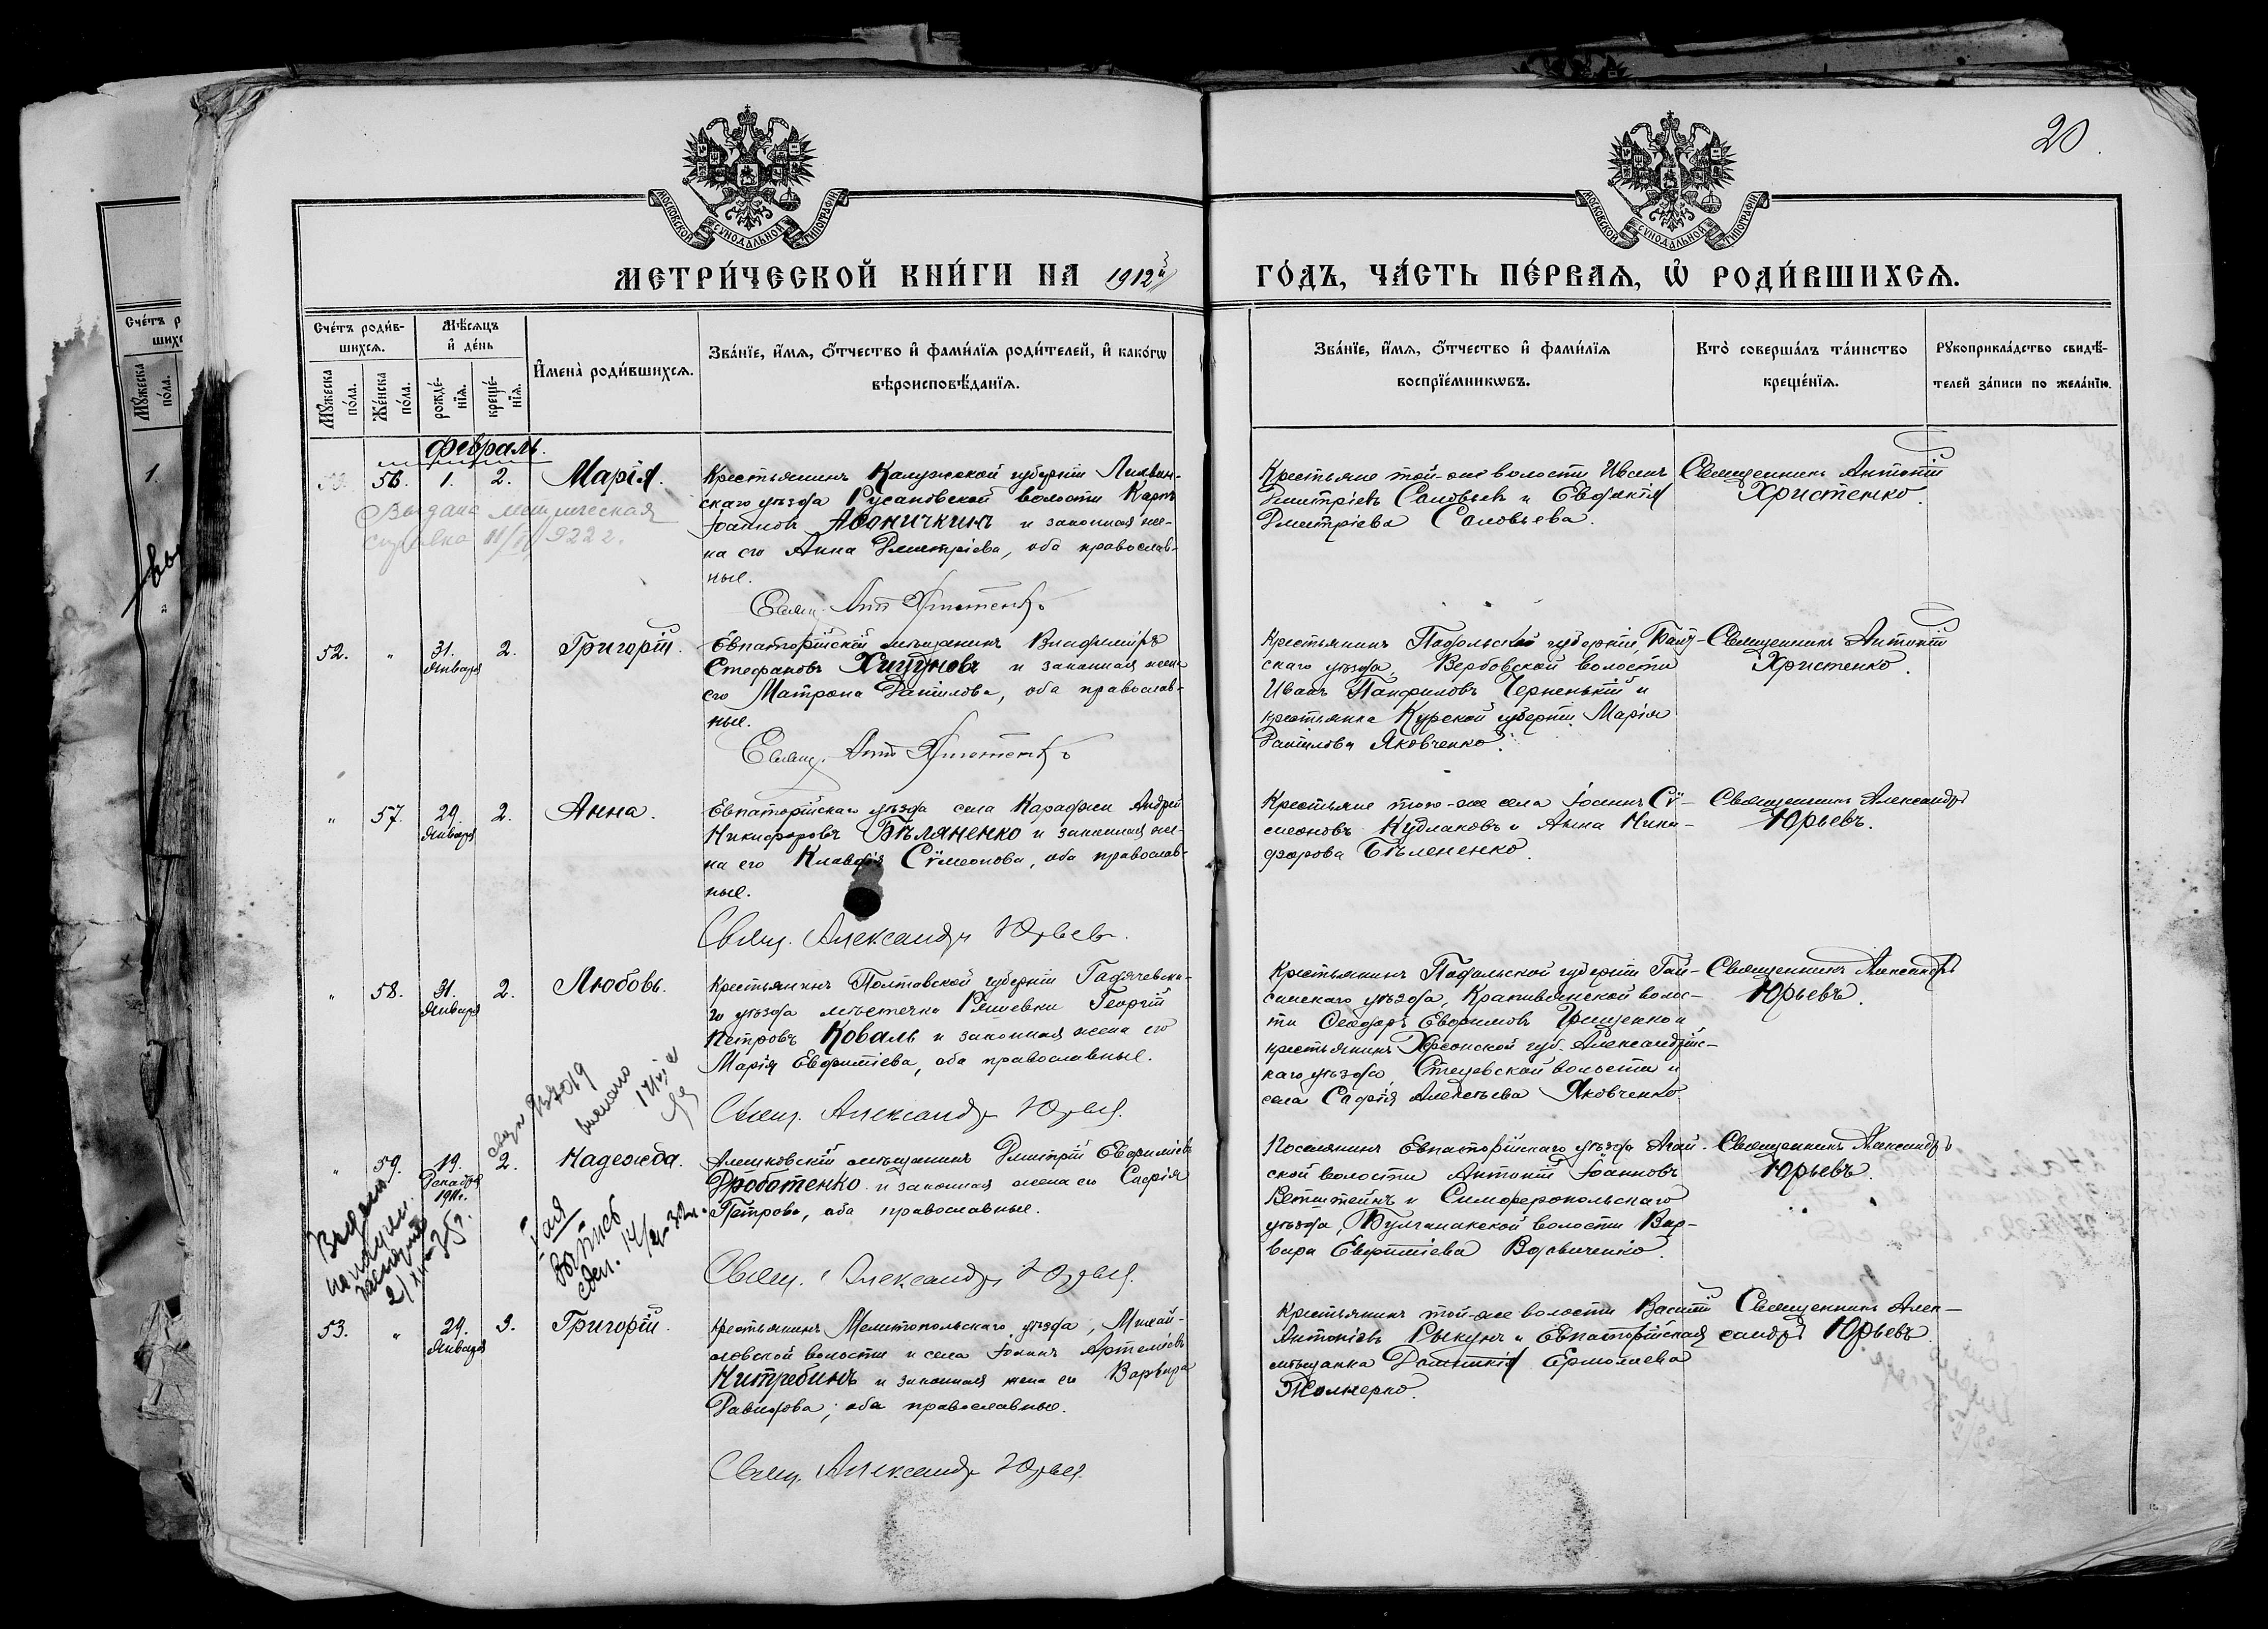 20
МОСКОВСКОЙ СУНОДАЛЬНОЙ ТИПОГРАФІИ
МОСКОВСКОЙ СУНОДАЛЬНОЙ ТИПОГРАФІИ
МЕТРИ́ЧЕСКОЙ КНИ́ГИ НА 1912й ГО́ДЪ, ЧА́СТЬ ПЕ́РВАЯ, Ѡ РОДИ́ВШИХСЯ.
Сче́тъ роди́в-
шихся.
Мѣ́сяцъ
и де́нь
Мꙋжеска
по́ла.
Же́нска
по́ла.
рожде́-
нїѧ.
креще́-
нїѧ.
Имена̀ роди́вшихся.
Зва́нїе, и́мѧ, ѻ҆́тчество и фами́лїѧ роди́телей, и како́гѡ
вѣроисповѣ́данїѧ.
Зва́нїе, и́мѧ, ѻ҆́тчество и фами́лїѧ
воспрїе́мникѡвъ.
Кто̀ соверша́лъ та́инство
креще́нїѧ.
Рꙋкоприкла́дство свидѣ́-
телей за́писи по жела́нїю.
Февраль.
56. 1. 2. Марія.
Крестьянинъ Калужской губерніи Лихвин-
скаго уѣзда Русановской волости Карпъ
Іоанновъ Афоничкинъ и законная же-
на его Анна Дмитріева, оба православ-
ные.
Свящ. Ант Христенко
Крестьяне той-же волости Иванъ
Дмитріевъ Соловьевъ и Евдокія
Дмитріева Соловьева.
Священникъ Антоній
Христенко.
Выдана метрическая
справка
52. " 31. 2. Григорій.
Января
Евпаторійскій мѣщанинъ Владиміръ
Стефановъ Хищуновъ и законная жена
его Матрона Данілова, оба православ-
ные.
Свящ. Ант Христенко
Крестьянинъ Подольской губерніи,
скаго уѣзда, Вербовской волости
Иванъ Панфиловъ Черненькій и
крестьянка Курской губерніи Марія
Данілова Яковченко.
Священникъ Антоній
Христенко.
" 57. 29. 2. Анна.
Января
Евпаторійскаго уѣзда села Караджи Андрей
Никифоровъ Бѣляненко и законная же-
на его Клавдія Сѵмеонова, оба православ-
ные.
Свящ. Александръ Юрьевъ.
Крестьяне того-же села Іоаннъ Сѵ-
меоновъ Кудлаковъ и Анна Ники-
форова Бѣлененко.
Священникъ Александръ
Юрьевъ.
" 58. 31. 2. Любовь.
Января
Крестьянинъ Полтавской губерніи Гадячевска-
го уѣзда мѣстечка Рашевки Георгій
Петровъ Коваль и законная жена его
Марія Евфиміева, оба православные.
Свящ. Александръ Юрьев.
Крестьянинъ Подольской губерніи Гай-
синскаго уѣзда, Крапивянской волос-
ти Ѳеодоръ Евфимовъ Грищенко и
крестьянинъ Херсонской губ. Александрійс-
каго уѣзда, волости и
села Софія Яковченко
Священникъ Александръ
Юрьевъ.
" 59. 19. 2. Надежда.
Декабря
1911г.
Алешковскій мѣщанинъ Дмитрій Евфиміевъ
Дроботенко и законная жена его Софія
Петрова, оба православные.
Свящ. Александръ Юрьев.
Поселянинъ Евпаторійскаго уѣзда Агай-
ской волости Антоній Іоанновъ
Ветштейнъ и Симферопольскаго
уѣзда, Булганакской волости Вар-
вара Евфиміева Вдовиченко.
Священникъ Александръ
Юрьевъ.
Выдано
53. " 29. 3. Григорій.
Января
Крестьянинъ Мелитопольскаго уѣзда, Михай-
ловской волости и села Іоаннъ Артеміевъ
Нитребинъ и законная жена его Варвара
Давидова; оба православные.
Свящ. Александръ Юрьев.
Крестьянинъ той-же волости Василій
Антоніевъ Рыкунъ и Евпаторійская
мѣщанка Домникія Ермолаева
Жолнерко.
Священникъ Алек-
сандръ Юрьевъ.